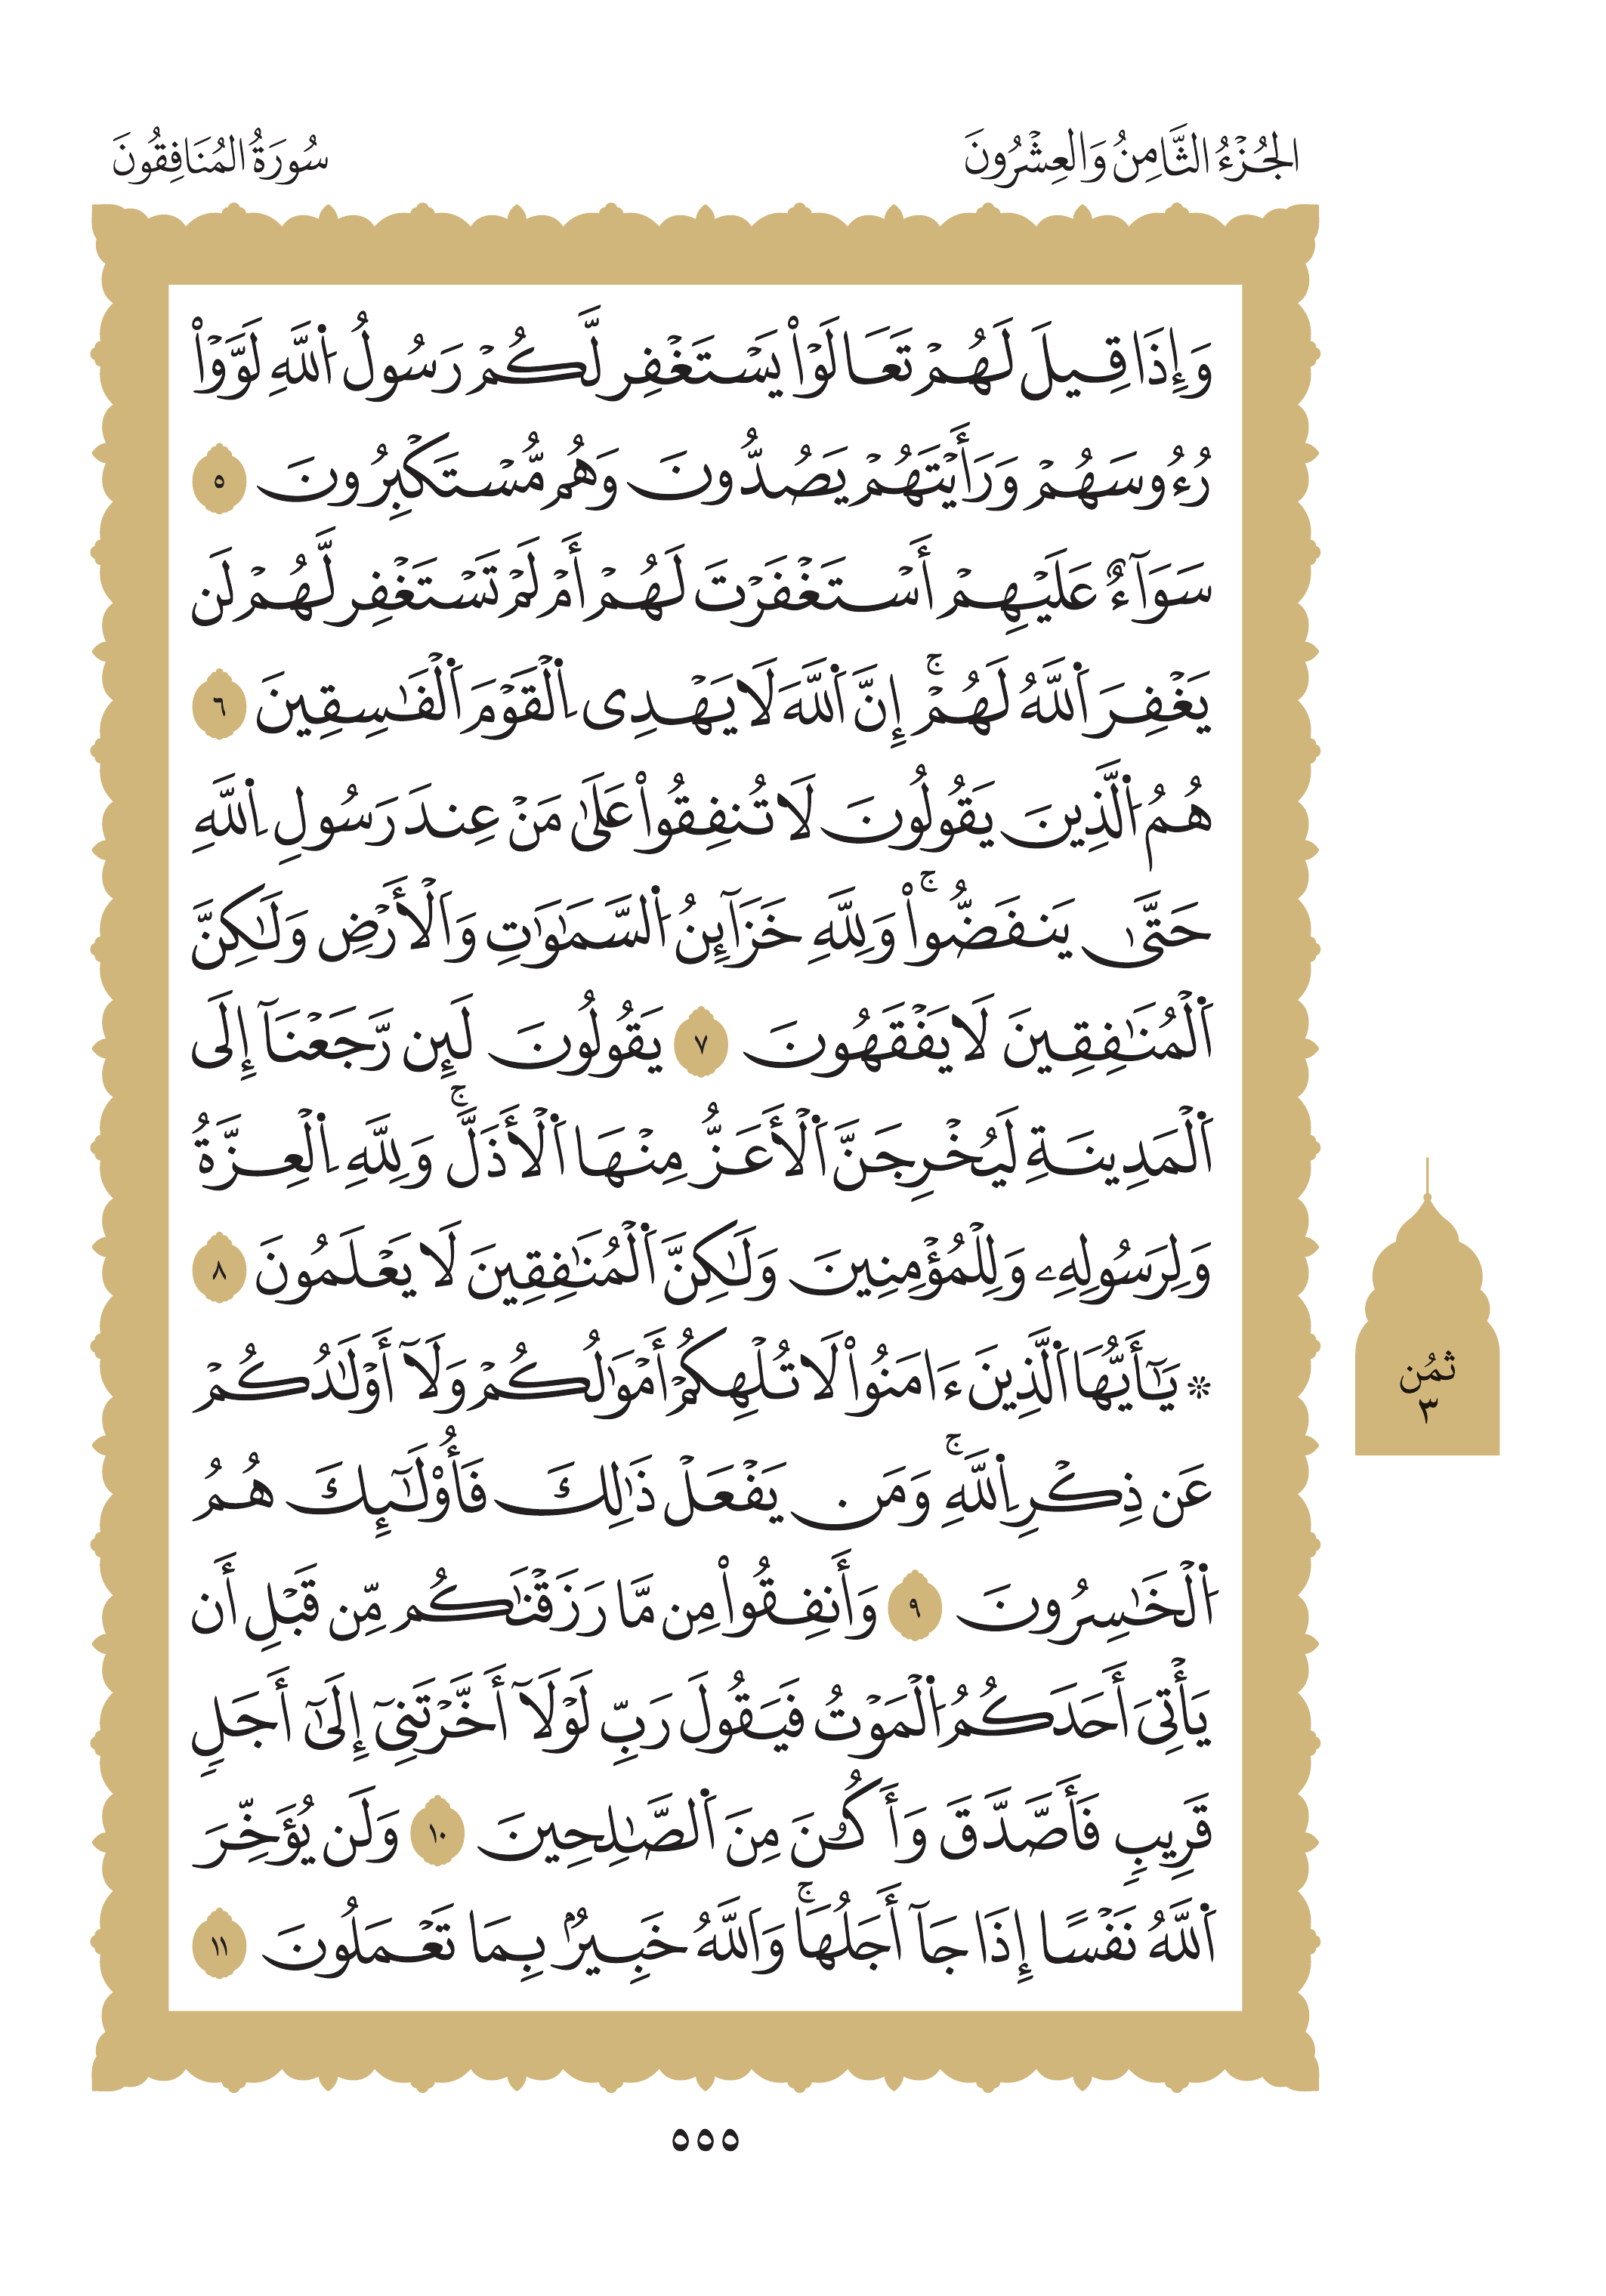 الجُزْءُ الثَّامِنُ وَالعِشْرُونَ
سُورَةُ المُنَافِقُونَ
وَإِذَا قِيلَ لَهُمْ تَعَالَوْا۟ يَسْتَغْفِر لَّكُمْ رَسُولُ اُ۬للَّهِ لَوَّوْا۟
رُءُوسَهُمْ وَرَأَيْتَهُمْ يَصُدُّونَ وَهُم مُّسْتَكْبِرُونَ ٥
سَوَآءٌ عَلَيْهِمْ أَسْتَغْفَرْتَ لَهُمْ أَمْ لَمْ تَسْتَغْفِر لَّهُمْ لَن
يَغْفِرَ اَ۬للَّهُ لَهُمْۚ إِنَّ اَ۬للَّهَ لَا يَهْدِى اِ۬لْقَوْمَ اَ۬لْفَٰسِقِينَ ٦
هُمُ اُ۬لَّذِينَ يَقُولُونَ لَا تُنفِقُوا۟ عَلَىٰ مَنْ عِندَ رَسُولِ اِ۬للَّهِ
حَتَّىٰ يَنفَضُّوا۟ۚ وَلِلَّهِ خَزَآئِنُ اُ۬لسَّمَٰوَٰتِ وَالْأَرْضِ وَلَٰكِنَّ
اَ۬لْمُنَٰفِقِينَ لَا يَفْقَهُونَ ٧ يَقُولُونَ لَئِن رَّجَعْنَآ إِلَى
اَ۬لْمَدِينَةِ لَيُخْرِجَنَّ اَ۬لْأَعَزُّ مِنْهَا اَ۬لْأَذَلَّۚ وَلِلَّهِ اِ۬لْعِزَّةُ
وَلِرَسُولِهِۦ وَلِلْمُؤْمِنِينَ وَلَٰكِنَّ اَ۬لْمُنَٰفِقِينَ لَا يَعْلَمُونَ ٨
۞ يَٰٓأَيُّهَا اَ۬لَّذِينَ ءَامَنُوا۟ لَا تُلْهِكُمْ أَمْوَٰلُكُمْ وَلَآ أَوْلَٰدُكُمْ
عَن ذِكْرِ اِ۬للَّهِۚ وَمَن يَفْعَلْ ذَٰلِكَ فَأُو۟لَٰٓئِكَ هُمُ
اُ۬لْخَٰسِرُونَ ٩ وَأَنفِقُوا۟ مِن مَّا رَزَقْنَٰكُم مِّن قَبْلِ أَن
يَأْتِىَ أَحَدَكُمُ اُ۬لْمَوْتُ فَيَقُولَ رَبِّ لَوْلَآ أَخَّرْتَنِىٓ إِلَىٰٓ أَجَلٍ
قَرِيبٍ فَأَصَّدَّقَ وَأَكُۥنَ مِنَ اَ۬لصَّٰلِحِينَ ١٠ وَلَن يُؤَخِّرَ
اَ۬للَّهُ نَفْسًا إِذَا جَآ أَجَلُهَاۚ وَاللَّهُ خَبِيرٌۢ بِمَا تَعْمَلُونَ ١١
ثُمُن
٣
٥٥٥